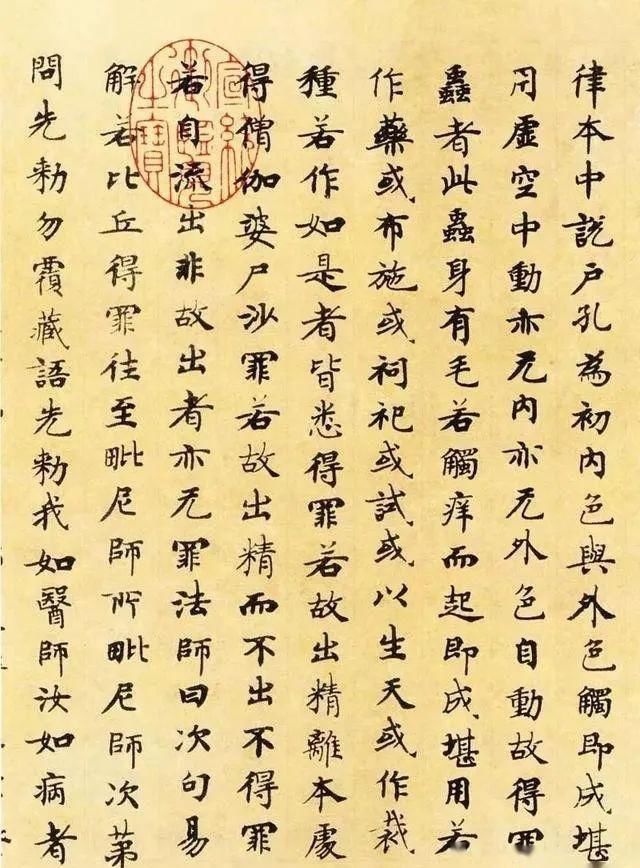 律本中説戸孔為初内色與外色觸即成堪
用虚空中動亦无内亦无外色自動故得罪
蟲者此蟲身有毛若觸痒而起即成堪用若
作藥或布施或祠祀或試或以生天或作裁
種若作如是者皆悉得罪若故出精離本處
得僧伽婆尸沙罪若故出精而不出不得罪
若自流出非故出者亦无罪法師曰次句易
解若比丘得罪往至毗尼師所毗尼師次第
問先勑勿覆藏語先勑我如醫師汝如病者